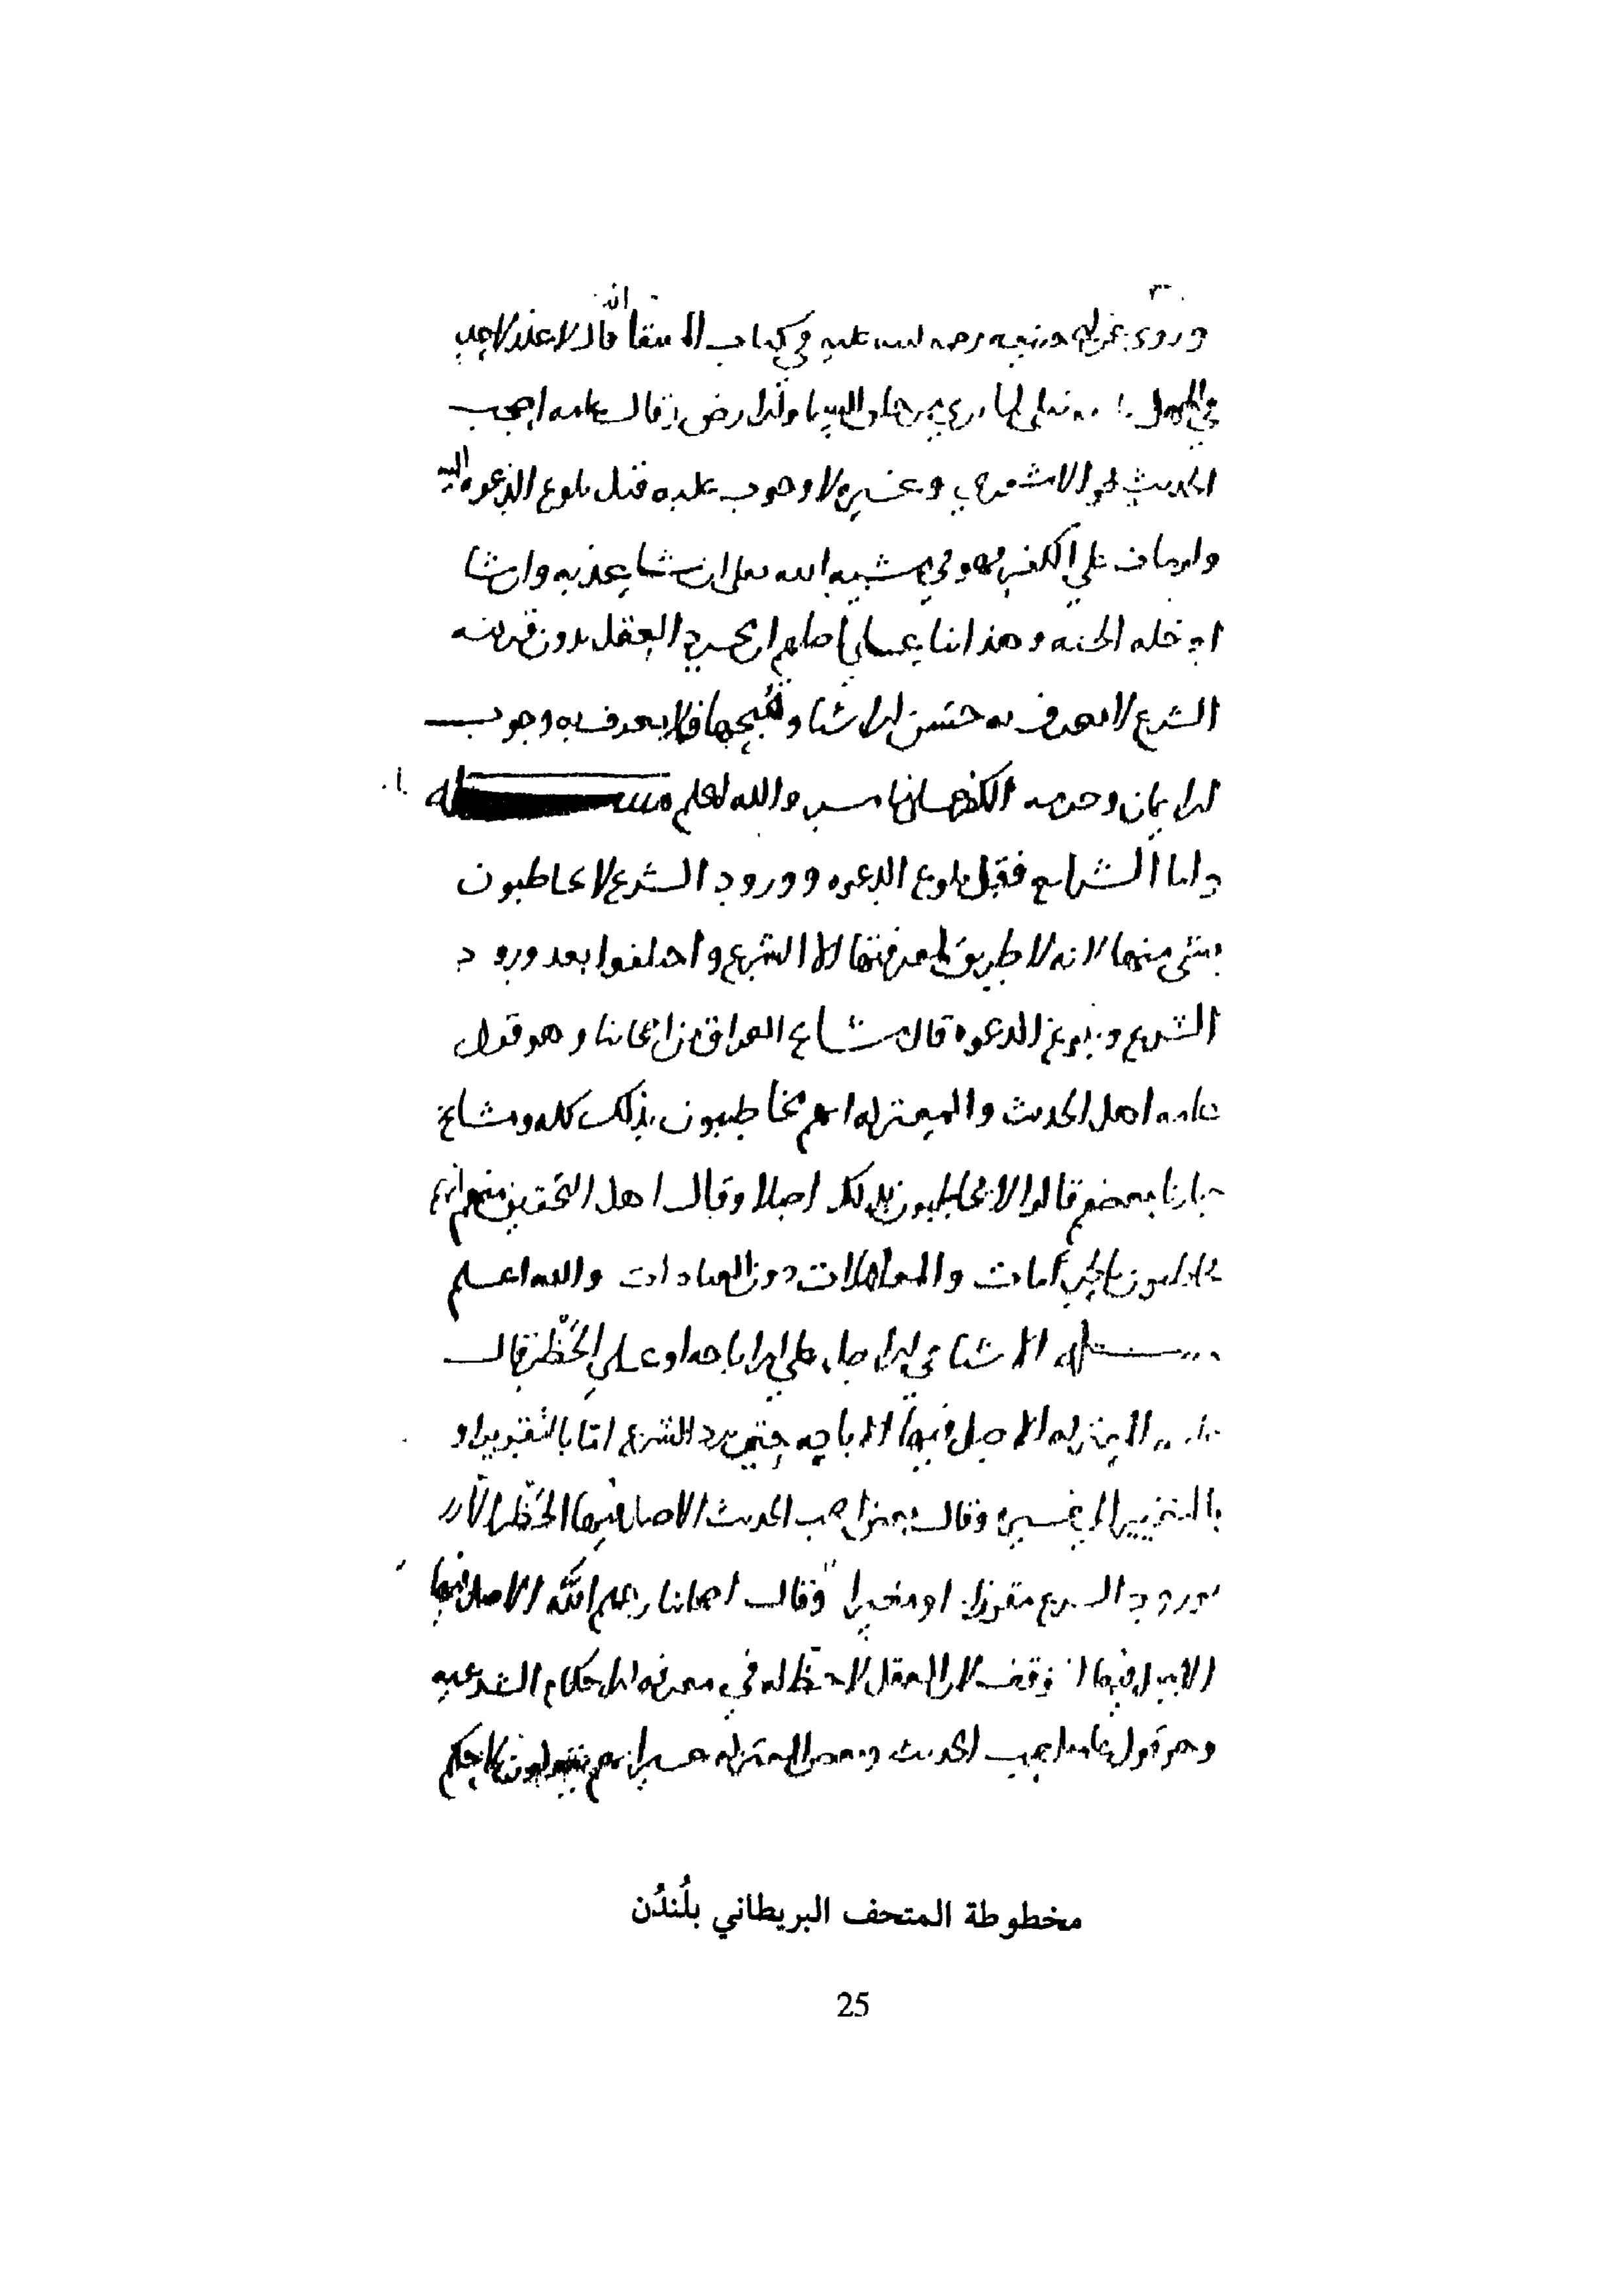 وروى عن ابي حنيفه رحمه الله عليه في كتاب المنتقا انه قال لا عذر لاحد
في الجهل بالله تعلى لما يرى من خلق السما والارض وقال عامه اصحب
الحديث نحو الاشعري وغيره لا وجوب عليه قبل بلوغ الدعوه اليه
وان مات علي الكفر فهو في مشيه الله تعلى ان شا عذبه وان شا
ادخله الجنه وهذا بنا علي اصلهم ان مجرد العقل بدون قرينه
الشرع لا يعرف به حسن الاشيا وقبحها فلا يعرف به وجوب
الايمان وحرمه الكفر والله اعلم مسله
واما الشرايع فقبل بلوغ الدعوه وورود الشرع لا يخاطبون
بشي منها لانه لا طريق لمعرفتها الا الشرع واختلفوا بعد ورود
الشرع وبلوغ الدعوه قال مشايخ العراق من اصحابنا وهو قول
عامه اهل الحديث والمعتزله انهم مخاطبون بذلك كله ومشايخ
ديارنا بعضهم قالوا لا يخاطبون بذلك اصلا وقال اهل التحقيق منهم انهم
يخاطبون بالحرمات والمعاملات دون العبادات والله اعلم
مسله الاشيا في الاصل علي الاباحه او علي الحظر قال
عامه المعتزله الاصل فيها الاباحه حتي يرد الشرع اما بالتقرير او
بالتغيير الي غيره وقال بعض اصحب الحديث الاصل فيها الحظر الا
بورود الشرع مقررا او مغيرا وقال اصحابنا رحمهم الله الاصل فيها
التوقف لان العقل لا حظ له في معرفه الاحكام الشرعيه
وهو قول عامه اصحب الحديث وبعض المعتزله غير انهم يقولون لا حكم
مخطوطة المتحف البريطاني بلُندُن
25